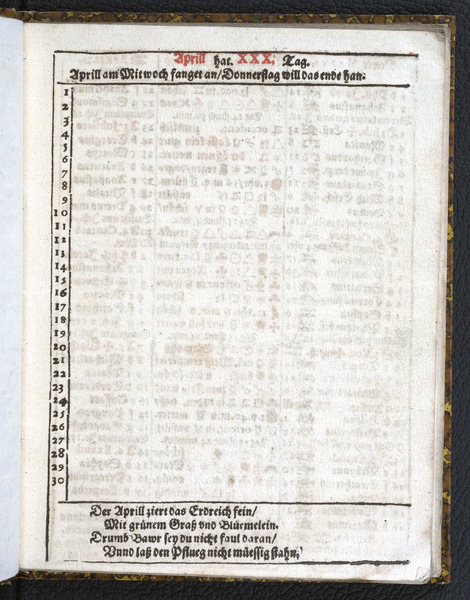 Aprill hat. XXX. Tag.
Aprill am Mitwoch fanget an/ Donnerstag will das ende han.
1
2
3
4
5
6
7
8
9
10
11
12
13
14
15
16
17
18
19
20
21
22
23
24
25
26
27
28
29
30
Der Aprill ziert das Erdreich fein/
Mit grünem Graß vnd Blümelein.
Drumb Bawr sey du nicht faul daran/
Vnnd laß den Pflueg nicht müessig stahn,